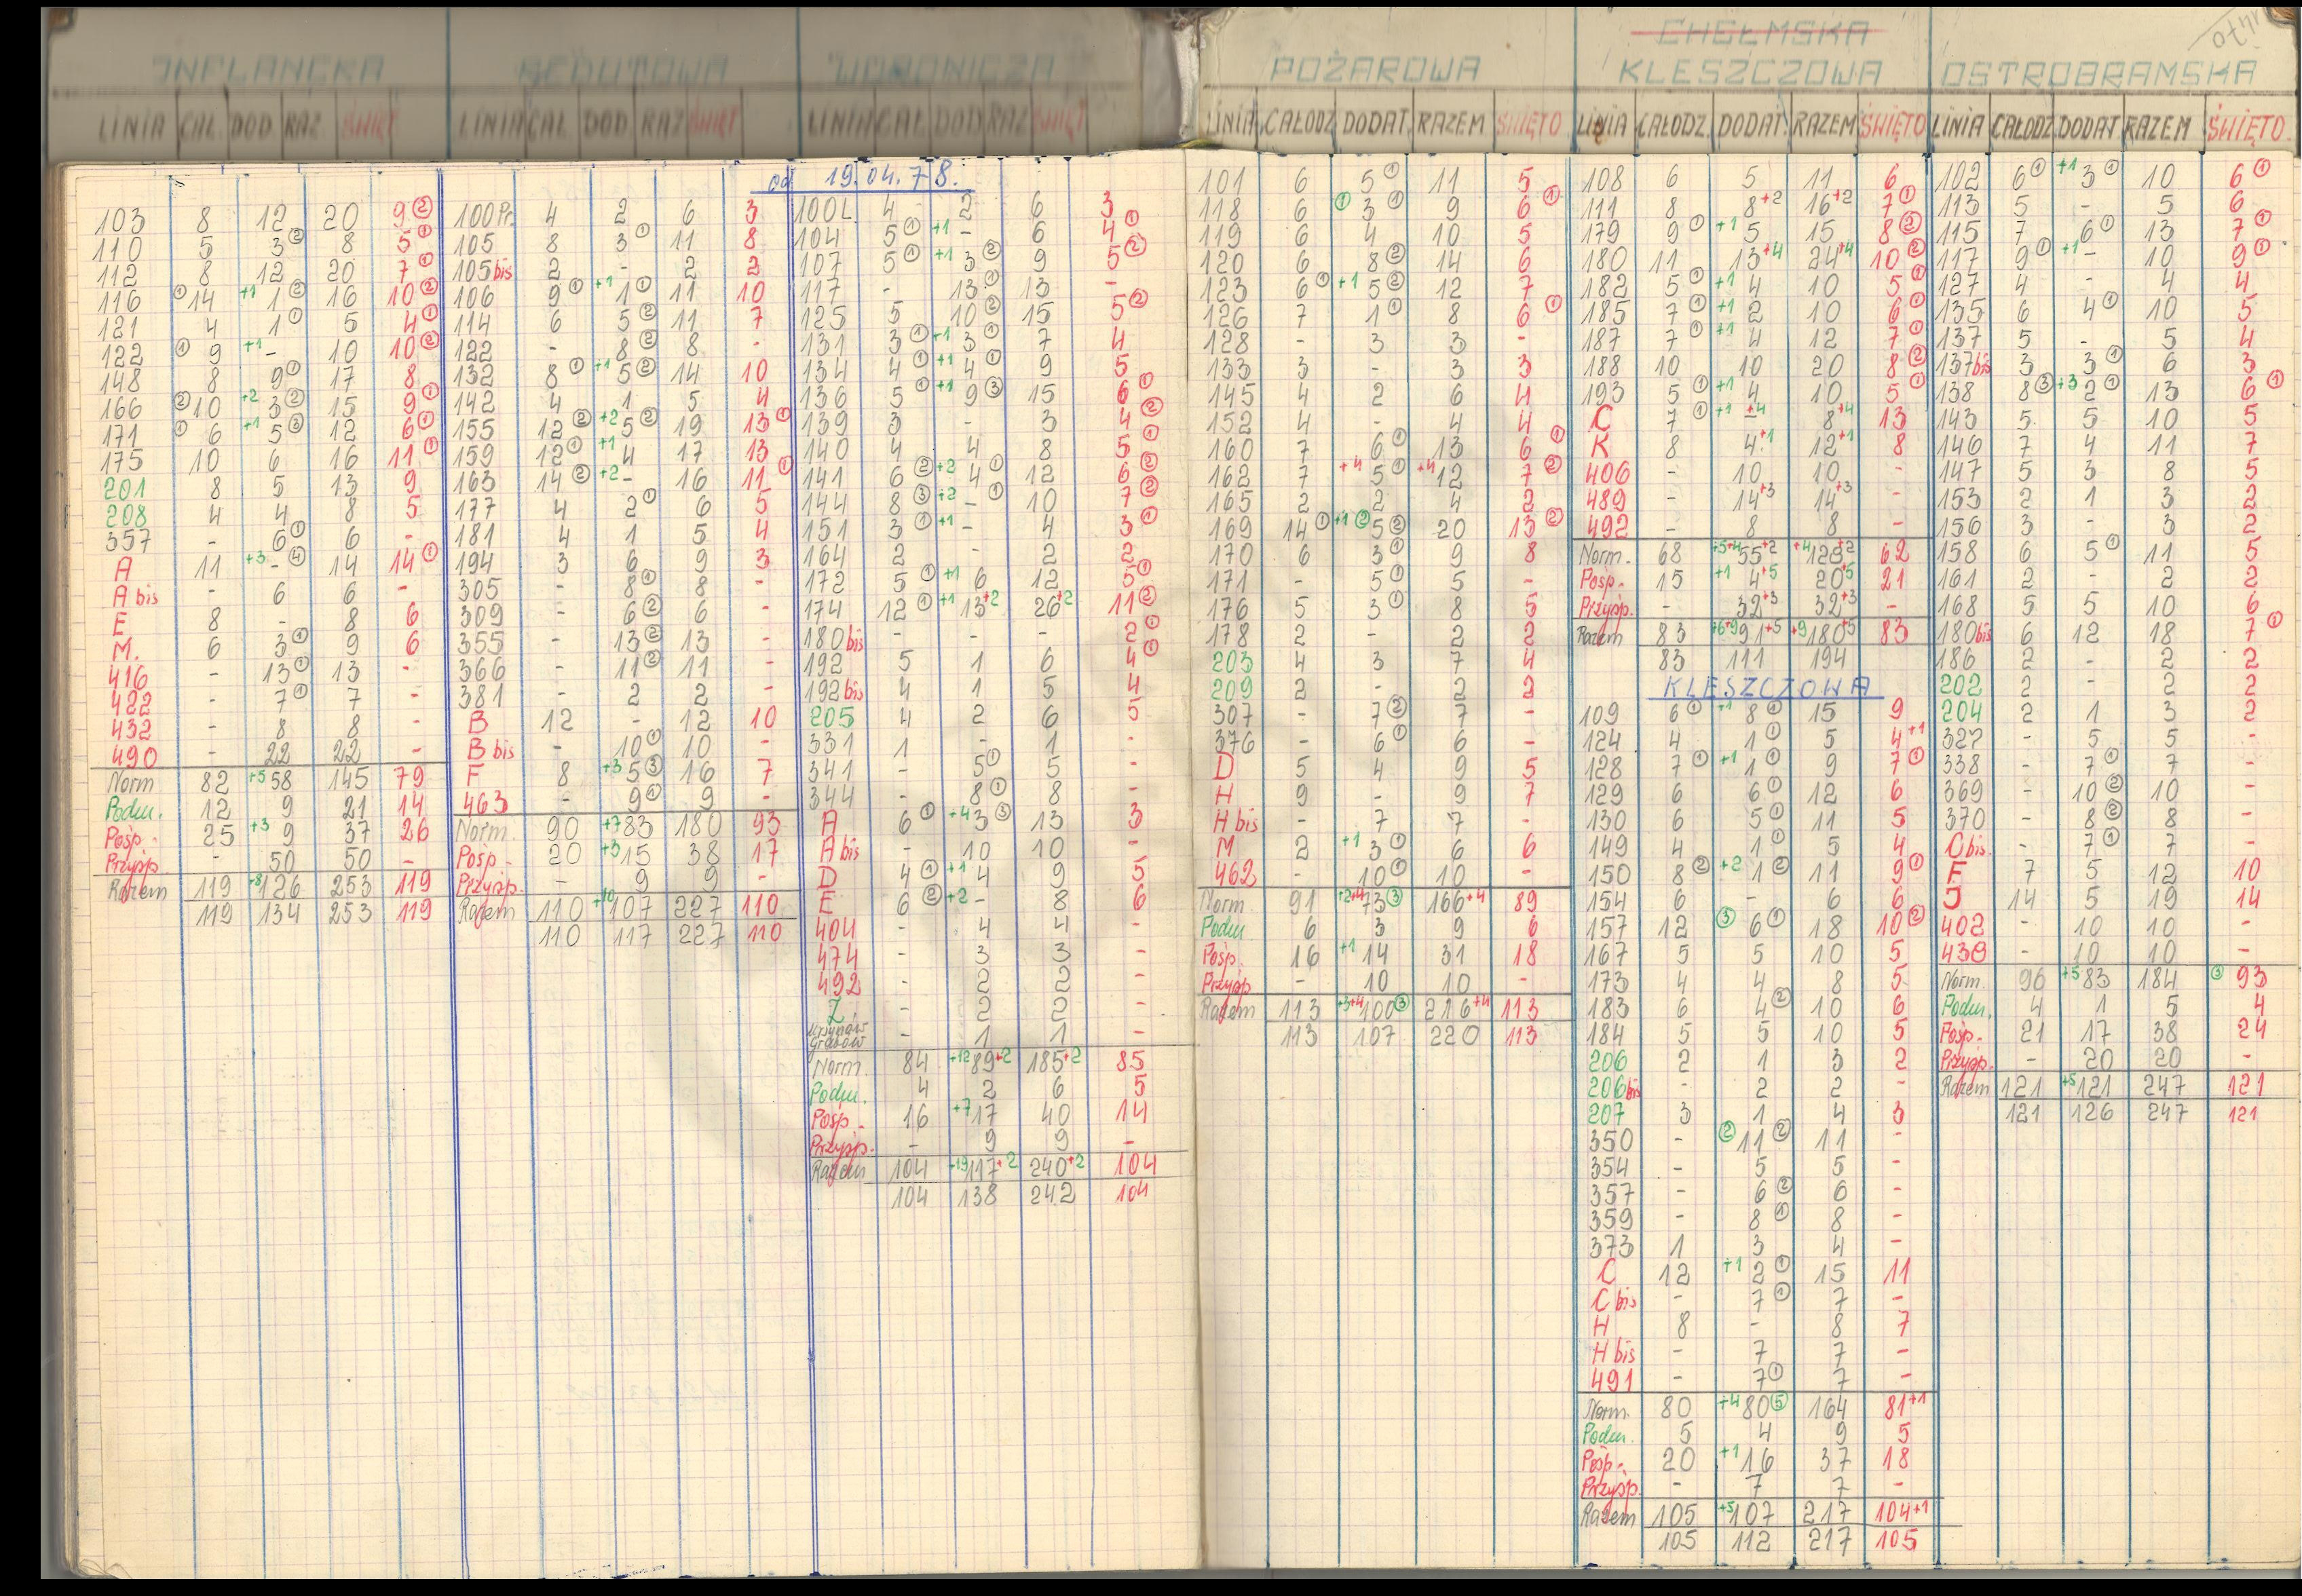 INFLANCKA
LINIA CAŁ DOD RAZ ŚWIĘT
103 8 12 20 9②
110 5 3② 8 5①
112 8 12 20 7①
116 ①14 +1 1② 16 10②
121 4 1① 5 4①
122 ①9 +1 - 10 10②
148 8 9① 17 8
166 ②10 +2 3② 15 9①
171 ①6 +1 5③ 12 6①
175 10 6 16 11①
201 8 5 13 9
208 4 4 8 5
357 - 6① 6 -
A 11 +3 -④ 14 14①
A bis - 6 6 -
E 8 - 8 6
M. 6 3① 9 6
416 - 13① 13 -
422 - 7① 7 -
432 - 8 8 -
490 - 22 22 -
Norm 82 +5 58 145 79
Podm. 12 9 21 14
Posp. 25 +3 9 37 26
Przysp - 50 50 -
Razem 119 +8 126 253 119
119 134 253 119
REDUTOWA
LINIA CAŁ DOD RAZ ŚWIĘT
100Pr. 4 2 6 3
105 8 3① 11 8
105bis 2 - 2 2
106 9① +1 1① 11 10
114 6 5② 11 7
122 - 8② 8 -
132 8① +1 5② 14 10
142 4 1 5 4
155 12② +2 5② 19 13①
159 12① +1 4 17 13
163 14② +2 - 16 11①
177 4 2① 6 5
181 4 1 5 4
194 3 6 9 3
305 - 8① 8 -
309 - 6② 6 -
355 - 13② 13 -
366 - 11② 11 -
381 - 2 2 -
B 12 - 12 10
B bis - 10① 10 -
F 8 +3 5③ 16 7
463 - 9① 9 -
Norm. 90 +7 83 180 93
Posp- 20 +3 15 38 17
Przysp. - 9 9 -
Razem 110 +10 107 227 110
110 117 227 110
WORONICZA
LINIA CAŁ DOD RAZ ŚWIĘT
od 19.04.78.
100L 4 2 6 3
104 5① +1 - 6 4①
107 5① +1 3② 9 5②
117 - 13① 13 -
125 5 10② 15 5②
131 3① +1 3① 7 4
134 4① +1 4① 9 5
136 5① +1 9③ 15 6①
139 3 - 3 4②
140 4 4 8 5①
141 6② +2 4① 12 6②
144 8③ +2 -① 10 7②
151 3① +1 - 4 3①
164 2 - 2 2
172 5① +1 6 12 5①
174 12① +1 13+2 26+2 11②
180bis - - - 2①
192 5 1 6 4①
192bis 4 1 5 4
205 4 2 6 5
331 1 - 1 -
341 - 5① 5 -
344 - 8① 8 -
A 6① +4 3③ 13 3
A bis - 10 10 -
D 4① +1 4 9 5
E 6② +2 - 8 6
404 - 4 4 -
474 - 3 3 -
492 - 2 2 -
Z. - 2 2 -
Ursynów Grabów - 1 1 -
Norm. 84 +12 89+2 185+2 85
Podm. 4 2 6 5
Posp.- 16 +7 17 40 14
Przysp. - 9 9 -
Razem 104 +19 117+2 240+2 104
104 138 242 104
POŻAROWA
LINIA CAŁODZ DODAT. RAZEM ŚWIĘTO
101 6 5① 11 5
118 6 ①3① 9 6①
119 6 4 10 5
120 6 8② 14 6
123 6① +1 5② 12 7
126 7 1① 8 6①
128 - 3 3 -
133 3 - 3 3
145 4 2 6 4
152 4 - 4 4
160 7 6① 13 6①
162 7 +4 5① +4 12 7②
165 2 2 4 2
169 14① +1 ②5② 20 13②
170 6 3① 9 8
171 - 5① 5 -
176 5 3① 8 5
178 2 - 2 2
203 4 3 7 4
209 2 - 2 2
307 - 7② 7 -
376 - 6① 6 -
D 5 4 9 5
H 9 - 9 7
H bis - 7 7 -
M 2 +1 3① 6 6
462 - 10① 10 -
Norm 91 +2+4 73③ 166+4 89
Podm 6 3 9 6
Posp. 16 +1 14 31 18
Przysp - 10 10 -
Razem 113 +3+4 100③ 216+4 113
113 107 220 113
CHEŁMSKA
KLESZCZOWA
LINIA CAŁODZ. DODAT. RAZEM ŚWIĘTO
108 6 5 11 6
111 8 8+2 16+2 7①
179 9① +1 5 15 8②
180 11 13+4 24+4 10②
182 5① +1 4 10 5①
185 7① +1 2 10 6①
187 7① +1 4 12 7①
188 10 10 20 8②
193 5① +1 4 10 5①
C 7① +1 -+4 8+4 13
K 8 4+1 12+1 8
406 - 10 10 -
489 - 14+3 14+3 -
492 - 8 8 -
Norm. 68 +5+4 55+2 +4 128+2 62
Posp. 15 +1 4+5 20+5 21
Przysp. - 32+3 32+3 -
Razem 83 +6+9 91+5 +9 180+5 83
83 111 194
KLESZCZOWA
109 6① +1 8① 15 9
124 4 1① 5 4+1
128 7① +1 1① 9 7①
129 6 6① 12 6
130 6 5① 11 5
149 4 1① 5 4
150 8② +2 1② 11 9①
154 6 - 6 6
157 12 ③6① 18 10②
167 5 5 10 5
173 4 4 8 5
183 6 4② 10 6
184 5 5 10 5
206 2 1 3 2
206bis - 2 2 -
207 3 1 4 3
350 - ②11② 11 -
354 - 5 5 -
357 - 6② 6 -
359 - 8① 8 -
373 1 3 4 -
C 12 +1 2① 15 11
C bis - 7① 7 -
H 8 - 8 7
H bis - 7 7 -
491 - 7① 7 -
Norm. 80 +4 80⑤ 164 81+1
Podm. 5 4 9 5
Posp. 20 +1 16 37 18
Przysp. - 7 7 -
Razem 105 +5 107 217 104+1
105 112 217 105
OSTROBRAMSKA
LINIA CAŁODZ DODAT RAZEM ŚWIĘTO
102 6① +1 3① 10 6①
113 5 - 5 6
115 7 6① 13 7①
117 9① +1 - 10 9①
127 4 - 4 4
135 6 4① 10 5
137 5 - 5 4
137bis 3 3① 6 3
138 8③ +3 2① 13 6①
143 5 5 10 5
146 7 4 11 7
147 5 3 8 5
153 2 1 3 2
156 3 - 3 2
158 6 5① 11 5
161 2 - 2 2
168 5 5 10 6
180bis 6 12 18 7①
186 2 - 2 2
202 2 - 2 2
204 2 1 3 2
327 - 5 5 -
338 - 7① 7 -
369 - 10② 10 -
370 - 8② 8 -
C bis. - 7① 7 -
F 7 5 12 10
J 14 5 19 14
402 - 10 10 -
438 - 10 10 -
Norm. 96 +5 83 184 ③93
Podm. 4 1 5 4
Posp. 21 17 38 24
Przysp. - 20 20 -
Razem 121 +5 121 247 121
121 126 247 121